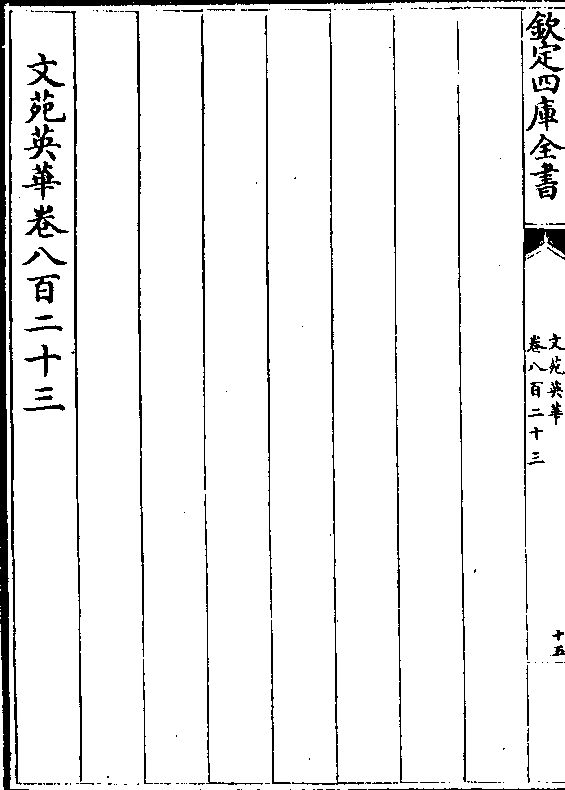 欽定四庫全書
文苑英華
卷八百二十三
十五
文苑英華卷八百二十三